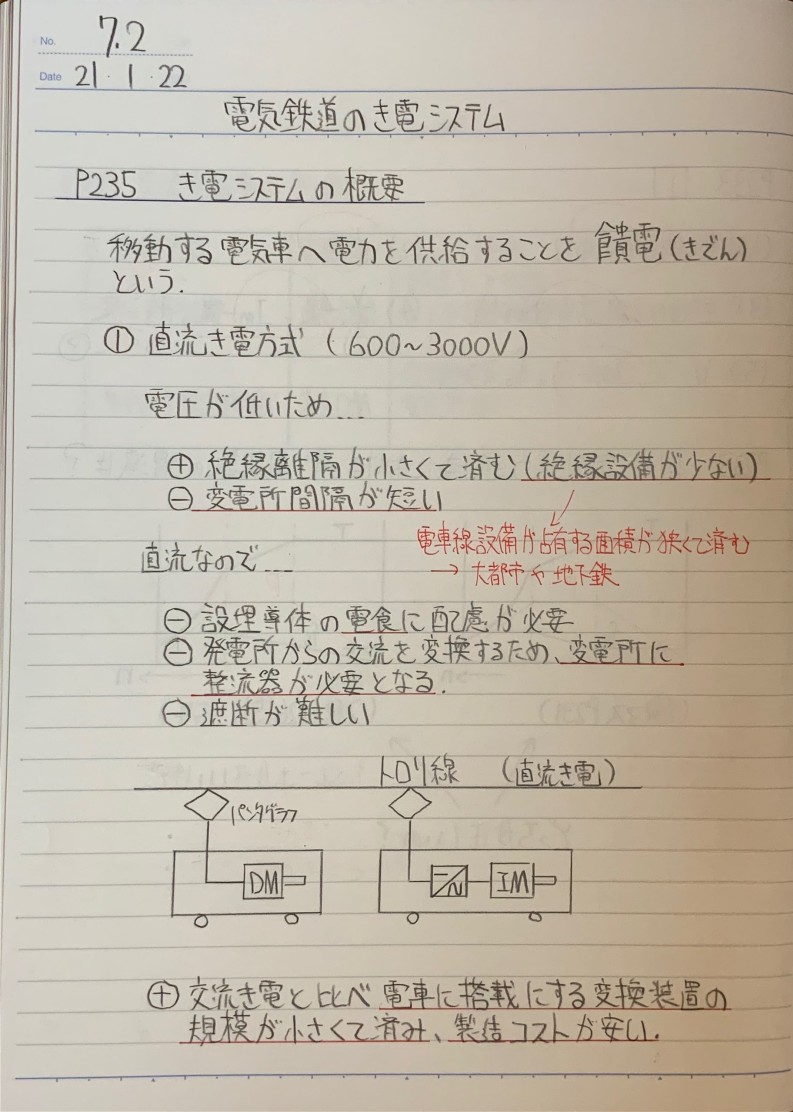 No. 7.2
Date 21・1・22
電気鉄道のき電システム
P235 き電システムの概要
移動する電気車へ電力を供給することを 饋電(きでん)
という.
① 直流き電方式 (600~3000V)
電圧が低いため...
⊕ 絶縁離隔が小さくて済む(絶縁設備が少ない)
⊖ 変電所間隔が短い
電車線設備が占有する面積が狭くて済む
→ 大都市や地下鉄
直流なので...
⊖ 設埋導体の電食に配慮が必要
⊖ 発電所からの交流を変換するため、変電所に
整流器が必要となる.
⊖ 遮断が難しい
トロリ線 (直流き電)
パンタグラフ
DM
IM
⊕ 交流き電と比べ 電車に搭載にする変換装置の
規模が小さくて済み、製造コストが安い.